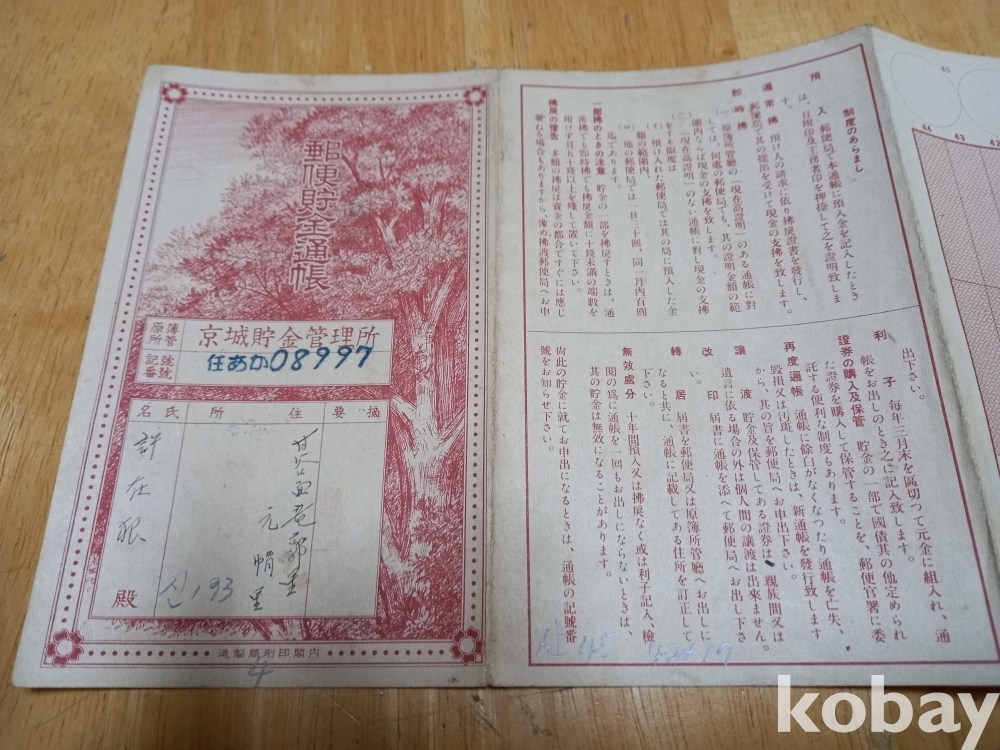 郵便貯金通帳
原簿所管
京城貯金管理所
記號番號
任あか08997
摘要
住所
氏名
元
里
許在
殿
신193
內閣印刷局製造
4
制度のあらまし
預入 郵便局で本通帳に預入金を記入したとき
は、日附印及主務者印を押捺して之を證明致しま
す。
通常拂 預け人の請求に依り拂戾證書を發行し、
郵便局で其の提出を受けて現金の支拂を致します。
卽時拂
(一)原簿所管廳の「現在高證明」のある通帳に對
しては、何處の郵便局でも、其の證明金額の範
圍內ならば現金の支拂を致します。
(二)「現在高證明」のない通帳に對し現金の支拂
をする限度は
(イ)預け入れた郵便局では其の局に預入した金
額の範圍內。
(ロ)他の郵便局では一日二十圓、同一月內百圓
迄であります。
一部拂のときの注意 貯金の一部を拂戾すときは、通
常拂でも卽時拂でも拂戾金額に十錢未滿の端數を
附けず且五十錢以上を殘して置いて下さい。
拂戾の豫告 多額の拂戾は資金の都合ですぐには應じ
兼ねる場合もありますから、豫め拂渡郵便局へお申
出下さい。
利子 每年三月末を區切つて元金に組入れ、通
帳をお出しのときに之に記入致します。
證券の購入及保管 貯金の一部で國債其の他定められ
た證券を購入して保管することを、郵便官署に委
託する便利な制度もあります。
再度通帳 通帳に餘白がなくなつたり通帳を亡失、
毀損又は汚斑したときは、新通帳を發行致します
から、其の旨を郵便局へお申出下さい。
讓渡 貯金及保管してある證券は、親族間又は
遺言に依る場合の外は個人間の讓渡は出來ません。
改印 屆書に通帳を添へて郵便局へお出し下さ
い。
轉居 屆書を郵便局又は原簿所管廳へお出しに
なると共に、通帳に記載してある住所を訂正して
下さい。
無效處分 十年間預入又は拂戾なく或は利子記入、檢
閱の爲に通帳を一回もお出しにならないときは、
其の貯金は無效になることがあります。
尙此の貯金に就てお申出になるときは、通帳の記號番
號をお知らせ下さい。
43
44
43
42
kobay